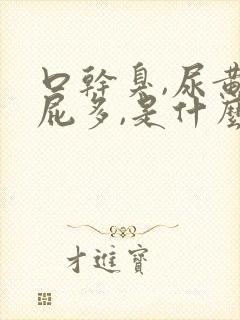 口幹臭,尿黃
屁多,是什麼
才進寶